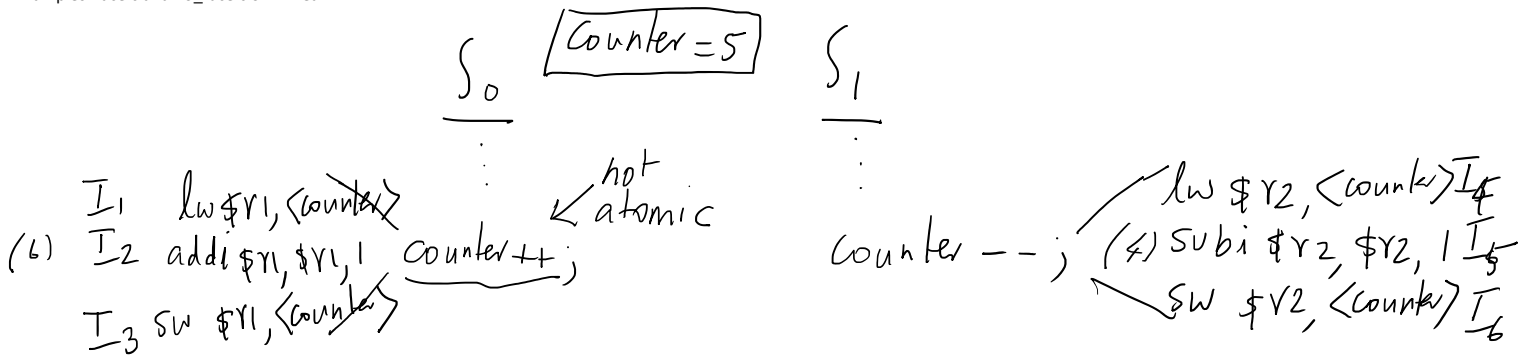 Counter = 5
S0 S1
not atomic
I1 lw $r1, <counter>
(6) I2 addi $r1, $r1, 1
I3 sw $r1, <counter>
counter++;
counter --;
lw $r2, <counter> I4
(4) subi $r2, $r2, 1 I5
sw $r2, <counter> I6